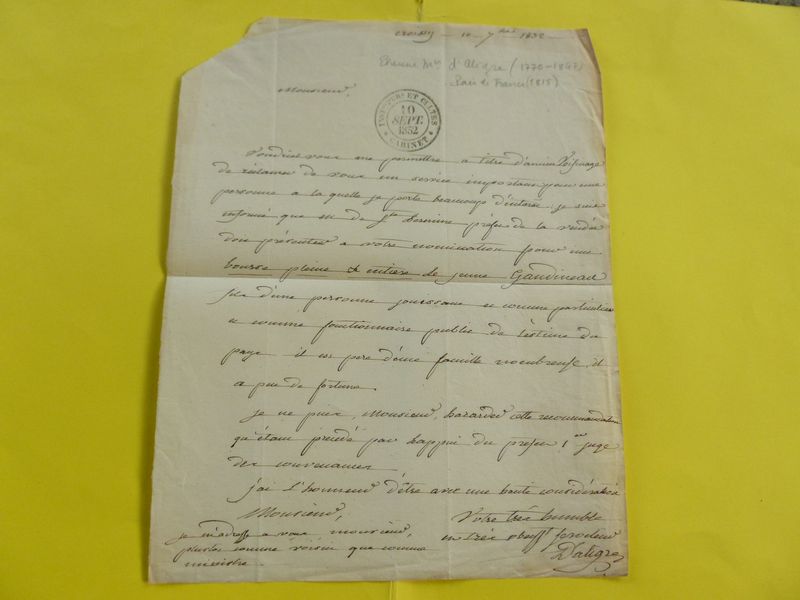 10 7bre 1832
Etienne Mis d'Aligre (1770-1847)
Pair de France (1815)
Monsieur,
INST. ET CULTES
10
SEPT.
1832
CABINET
Voudriez vous me permettre a titre d'ancien Voisinage
de réclamer de vous un service important pour une
personne a la quelle je porte beaucoup d'interet. je suis
informé que m. de Ste hermine préfet de la vendée
doit présenter a votre nomination pour une
bourse pleine & entière le jeune Gaudineau
fils d'une personne jouissant et comme particulier
et comme fonctionnaire public de l'estime du
pays il est pere d'une famille nombreuse, il
a peu de fortune.
je ne puis, Monsieur, hazarder cette recommandation
qu'étant précédé par l'appui du prefet 1er juge
des convenances.
j'ai l'honneur d'être avec une haute considération
Monsieur,
Votre très humble
et très obeisst serviteur
D'aligre
je m'adresse a vous monsieur,
plustot comme voisin que comme
ministre.